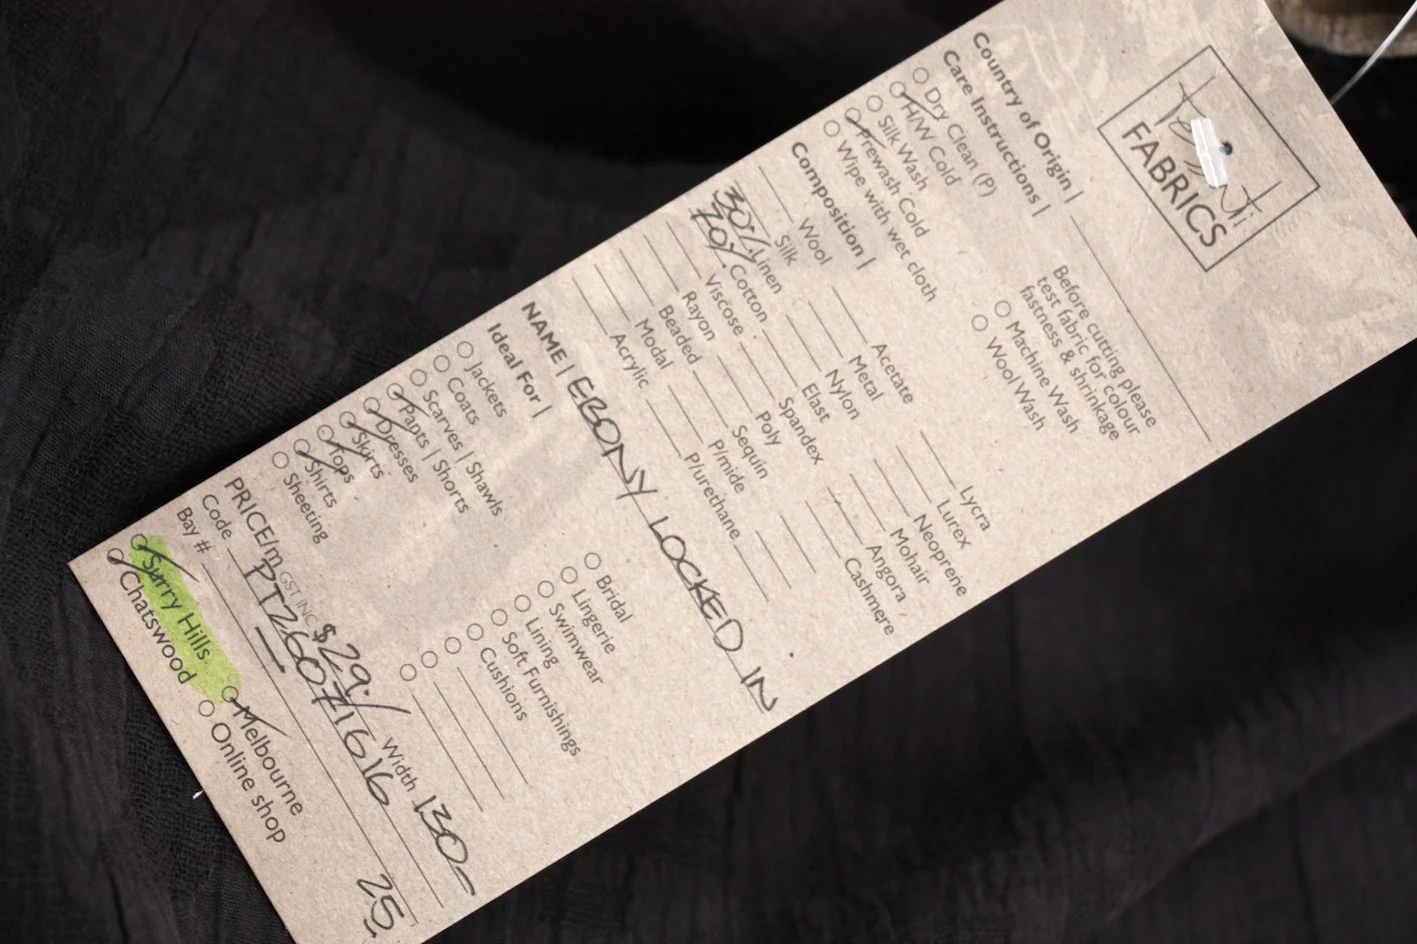 FABRICS
Country of Origin |
Care Instructions |
Before cutting please
test fabric for colour
fastness & shrinkage
Dry Clean (P)
H/W Cold
Silk Wash
Prewash Cold
Wipe with wet cloth
Machine Wash
Wool Wash
Composition |
Wool
Silk
30% Linen
70% Cotton
Viscose
Rayon
Beaded
Modal
Acrylic
Acetate
Metal
Nylon
Elast
Spandex
Poly
Sequin
P/mide
P/urethane
Lycra
Lurex
Neoprene
Mohair
Angora
Cashmere
NAME | EBONY LOCKED IN
Ideal For |
Jackets
Coats
Scarves | Shawls
Pants | Shorts
Dresses
Skirts
Tops
Shirts
Sheeting
Bridal
Lingerie
Swimwear
Lining
Soft Furnishings
Cushions
PRICE/m GST INC $29./ Width 130-
Code PT26071616
Bay # 25
Surry Hills
Melbourne
Chatswood
Online shop